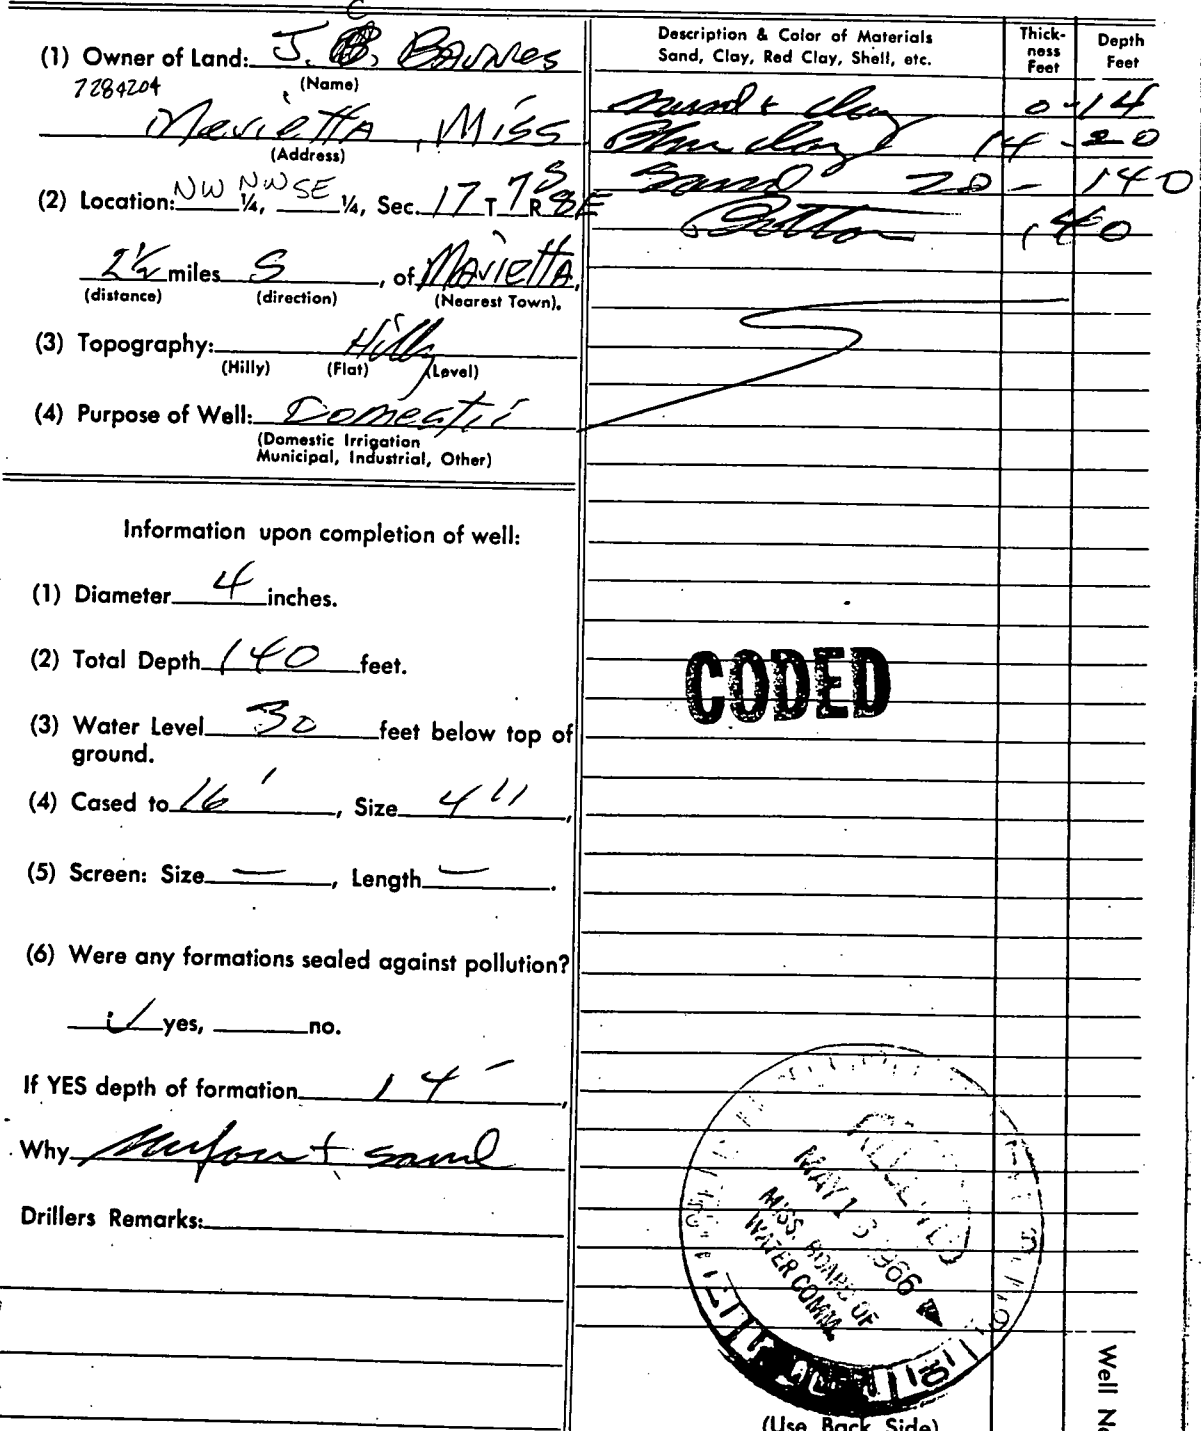 (1) Owner of Land: J. C. Barnes
7284204 (Name)
Marietta, Miss
(Address)
(2) Location: NW NW SE 1/4, 1/4, Sec. 17 T 7S R 8E
2 1/2 miles S, of Marietta,
(distance) (direction) (Nearest Town).
(3) Topography: Hilly
(Hilly) (Flat) (Level)
(4) Purpose of Well: Domestic
(Domestic Irrigation
Municipal, Industrial, Other)
Information upon completion of well:
(1) Diameter 4 inches.
(2) Total Depth 140 feet.
(3) Water Level 30 feet below top of
ground.
(4) Cased to 16', Size 4",
(5) Screen: Size —, Length —.
(6) Were any formations sealed against pollution?
✓ yes, no.
If YES depth of formation 14',
Why + sand
Drillers Remarks:
Description & Color of Materials
Sand, Clay, Red Clay, Shell, etc.
Thick-
ness
Feet
Depth
Feet
sand + clay 0-14
Blue clay 14-20
Sand 20-140
Bottom 140
CODED
RECEIVED
MAY 13 1966
MISS. BOARD OF
WATER COMM.
(Use Back Side)
Well No